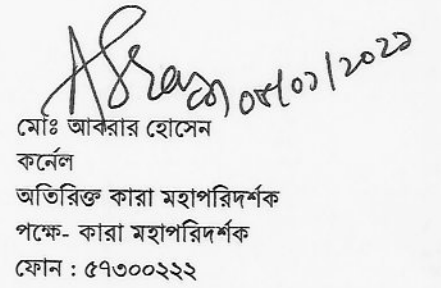 ০৮/০১/২০২১
মোঃ আবরার হোসেন
কর্নেল
অতিরিক্ত কারা মহাপরিদর্শক
পক্ষে- কারা মহাপরিদর্শক
ফোন : ৫৭৩০০২২২